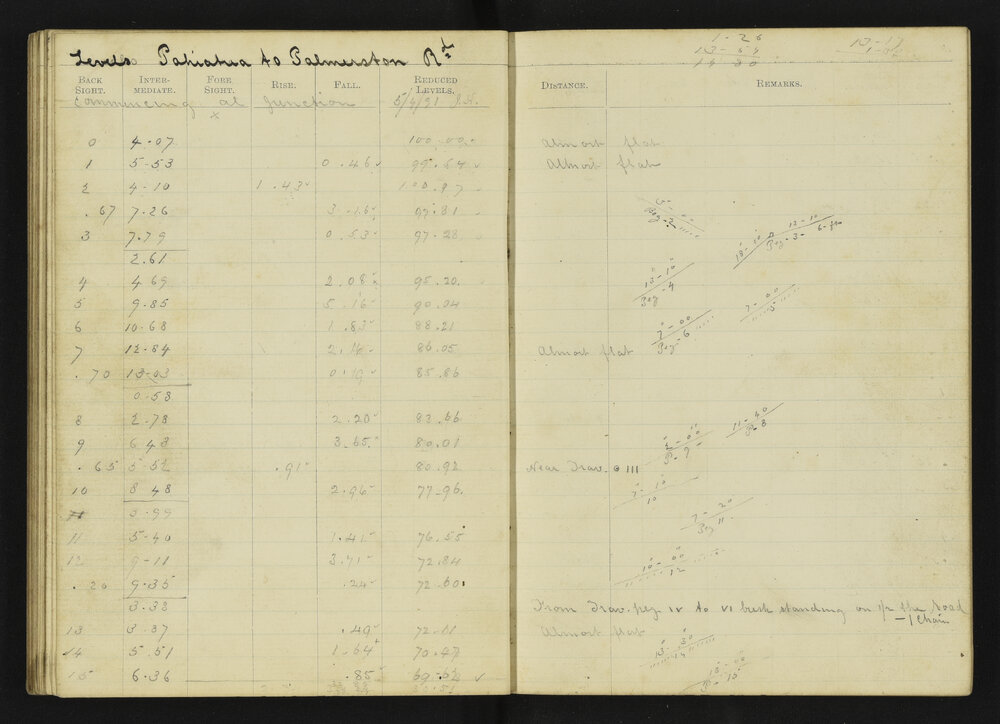 Levels Pahiatua to Palmerston Rd
BACK SIGHT. INTER-MEDIATE. FORE SIGHT. RISE. FALL. REDUCED LEVELS.
Commencing at Junction 5/4/91
x
0 4.07 100.00
1 5.53 0.46 99.54
2 4.10 1.43 100.97
.67 7.26 3.16 97.81
3 7.79 0.53 97.28
2.61
4 4.69 2.08 95.20
5 9.85 5.16 90.04
6 10.68 1.83 88.21
7 12.84 2.16 86.05
.70 13.03 0.19 85.86
0.58
8 2.78 2.20 83.66
9 6.43 3.65 80.01
.65 5.52 .91 80.92
10 8.48 2.96 77.96
3.99
11 5.40 1.41 76.55
12 9.11 3.71 72.84
.20 9.35 .24 72.60
3.38
13 3.87 .49 72.11
14 5.51 1.64 70.47
15 6.36 .85 69.62
1-26
13-17
DISTANCE. REMARKS.
Almost flat
Almost flat
Peg-2
12-10
Peg-3-
13-10
Peg-4
7-00
5
7-00
Peg-6
Almost flat
11-40
P. 8
P-9-
Near Trav. 111
7-10
10
7-20
Peg 11
10-00
12
From Trav. peg IV to VI bush standing on 1/2 the road
-1 Chain
Almost flat
13-30
14
P-15